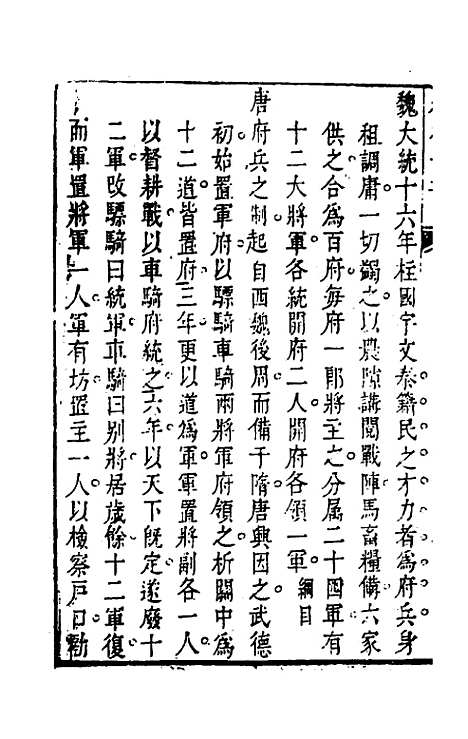 魏大統十六年柱國宇文泰籍民之才力者爲府兵身
租調庸一切蠲之以農隙講閱戰陣馬畜糧備六家
供之合爲百府每府一郎將主之分屬二十四軍有
十二大將軍各統開府二人開府各領一軍 綱目
唐府兵之制起自西魏後周而備于隋唐興因之武德
初始置軍府以驃騎車騎兩將軍府領之析關中爲
十二道皆置府三年更以道爲軍軍置將副各一人
以督耕戰以車騎府統之六年以天下旣定遂廢十
二軍改驃騎曰統軍車騎曰别將居歲餘十二軍復
而軍置將軍一人軍有坊置主一人以檢察戸口勸